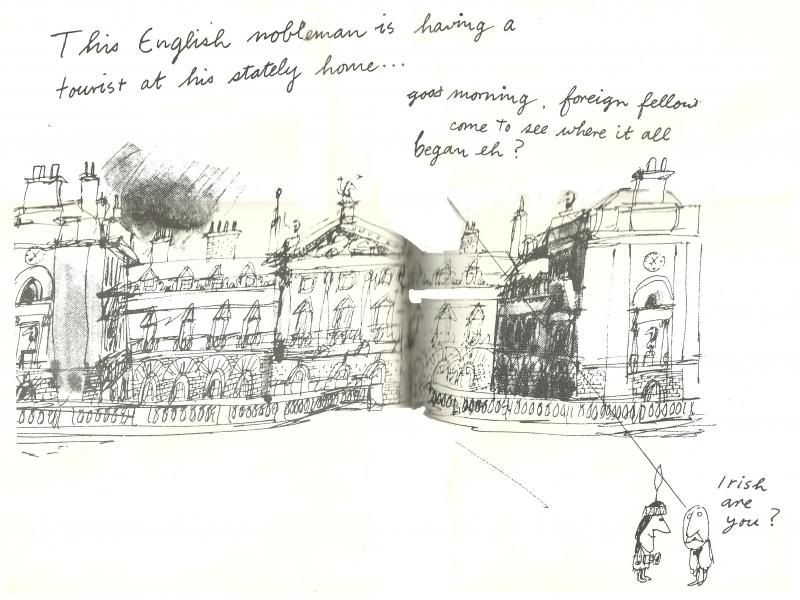 This English nobleman is having a
tourist at his stately home...
good morning, foreign fellow
come to see where it all
began eh?
Irish
are
you?